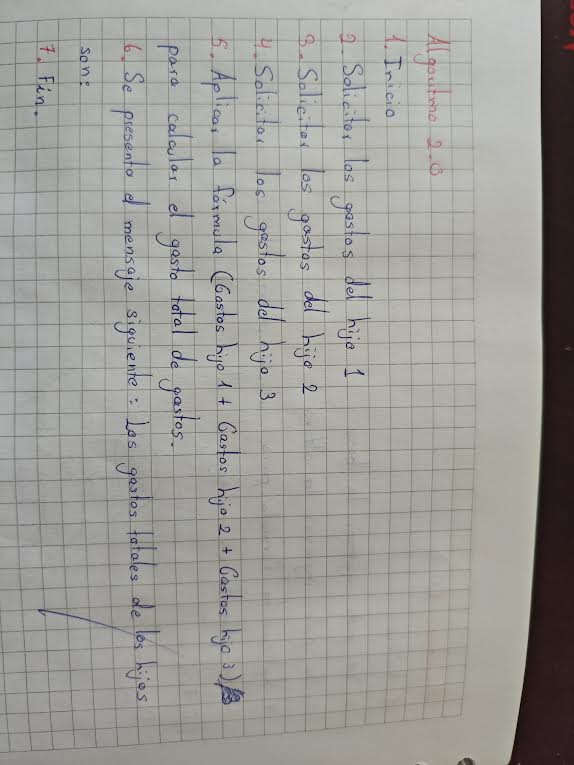 Algoritmo 2.0
1. Inicio
2. Solicitar los gastos del hijo 1
3. Solicitar los gastos del hijo 2
4. Solicitar los gastos del hijo 3
5. Aplicar la fórmula (Gastos hijo 1 + Gastos hijo 2 + Gastos hijo 3)
para calcular el gasto total de gastos.
6. Se presenta el mensaje siguiente: Los gastos totales de los hijos
son:
7. Fin.